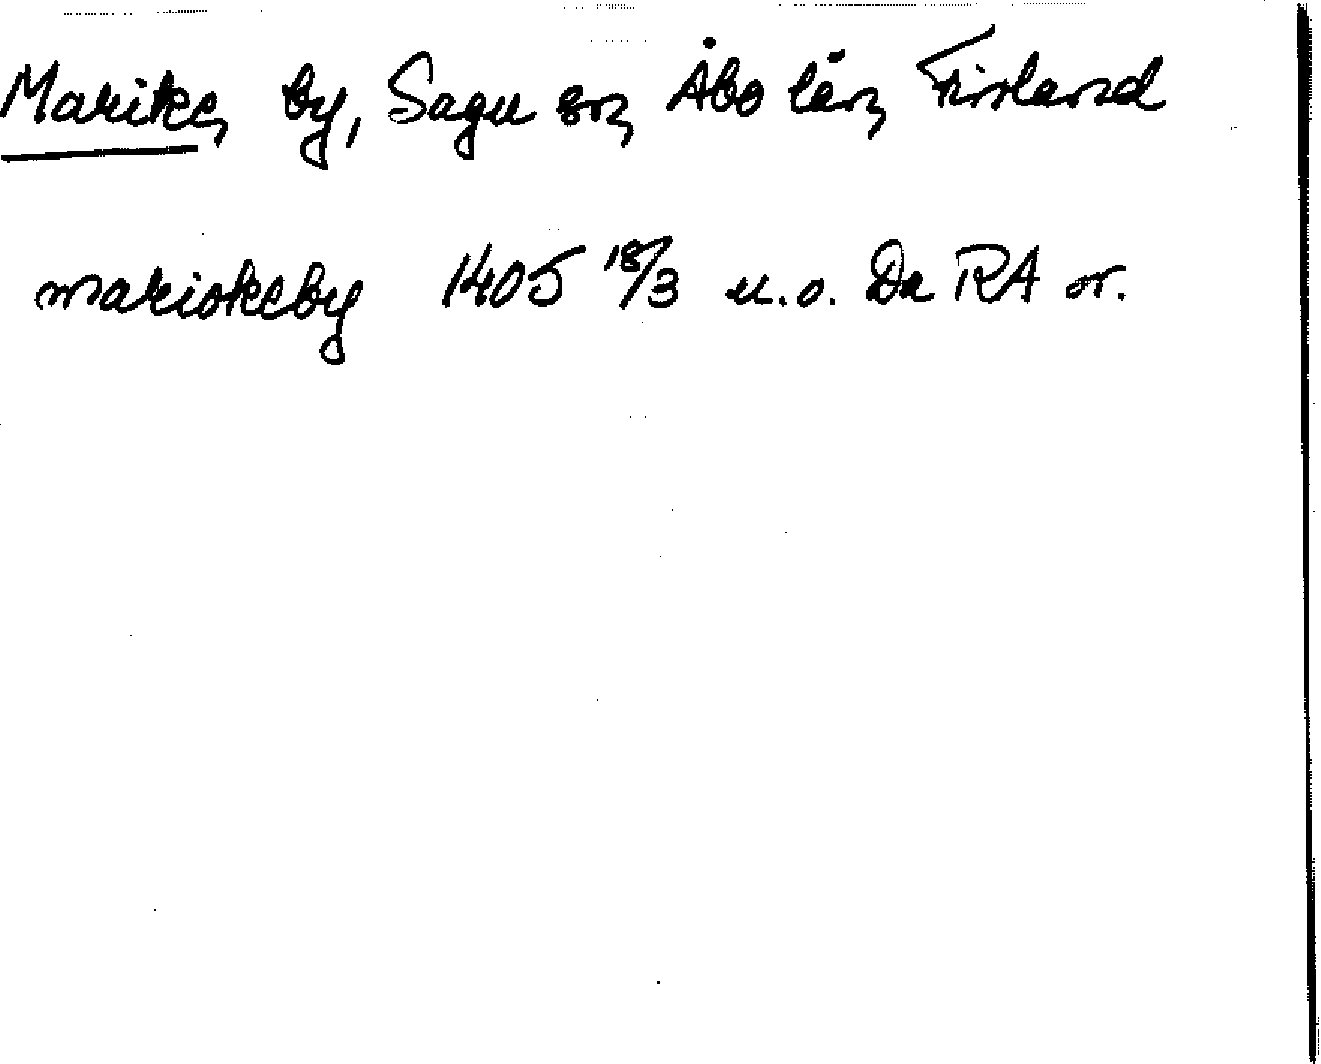 Marike, by, Sagu sn, Åbo län, Finland
mariokeby 1405 18/3 u.o. Da RA or.